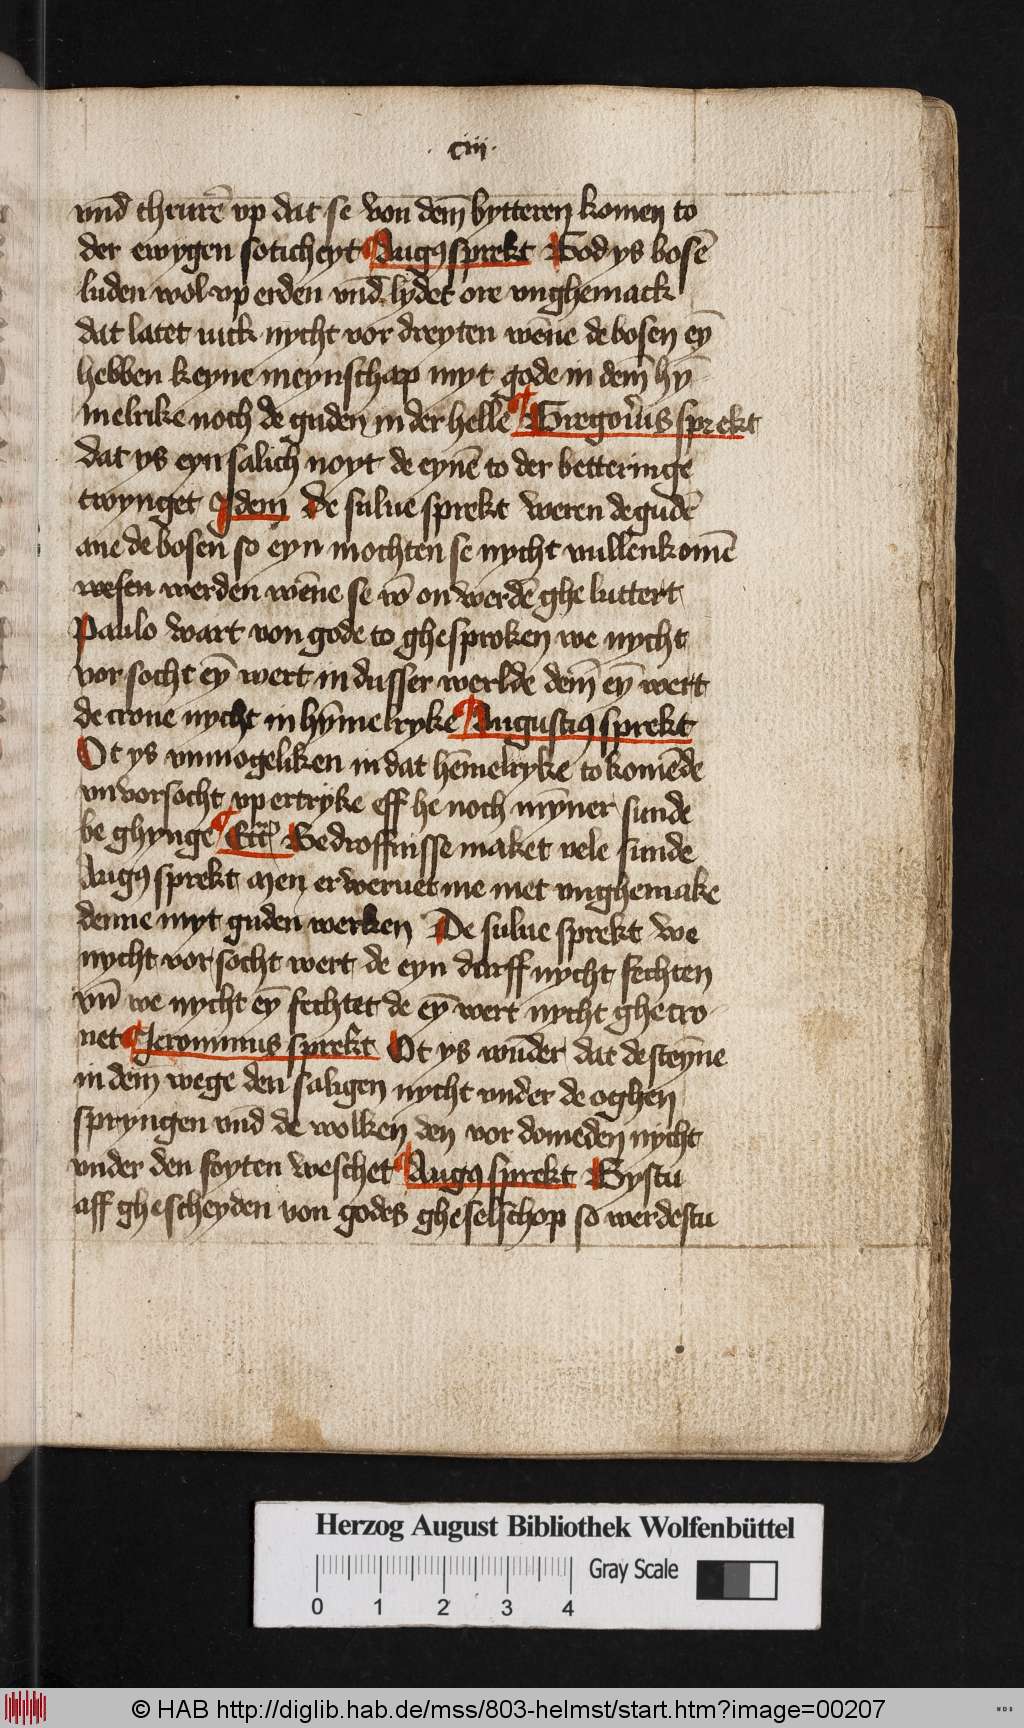 ·ciij·
vnd thrurē vp dat se von dem bytteren komen to
der ewygen soticheyt Augꝰ sprekt God ys bosē
luden wol vp erden vnd lydet ore vnghemack
dat latet iuck nycht vor dreyten wēne de bosen eȳ
hebben keyne meynschap myt gode in dem hȳ
melrike noch de guden in der helle Gregorius sprekt
dat ys eyn salich noyt de eynē to der betteringe
twynget Idem De sulue sprekt weren de gudē
ane de bosen so eyn mochten se nycht vullenkomē
wesen werden wēne se vō on werdē ghe luttert
Paulo wart von gode to ghesproken we nycht
vor socht eȳ wert in dusser werlde dem eȳ wert
de crone nycht in hȳmelryke Augustiꝰ sprekt
Ot ys vnmogeliken in dat hēmelryke to komēde
vnvorsocht vp ertryke eff he noch mȳner sunde
be ghynge Bedroffnisse maket vele sunde
Augꝰ sprekt Men erweruet me met vnghemake
denne myt guden werken De sulue sprekt we
nycht vor socht wert de eyn draff nycht fechten
vn̄ we nycht eȳ fechtet de eȳ wert nycht ghe cro
net Jeronimus sprekt Ot ys wūder dat de steyne
in dem wege den saligen nycht vnder de oghen
spryngen vnd de wolken den vor domeden nycht
vnder den foyten weschet Augꝰ sprekt Bystu
aff ghescheyden von godes gheselschop so werdestu
Herzog August Bibliothek Wolfenbüttel
Gray Scale
0 1 2 3 4
© HAB http://diglib.hab.de/mss/803-helmst/start.htm?image=00207